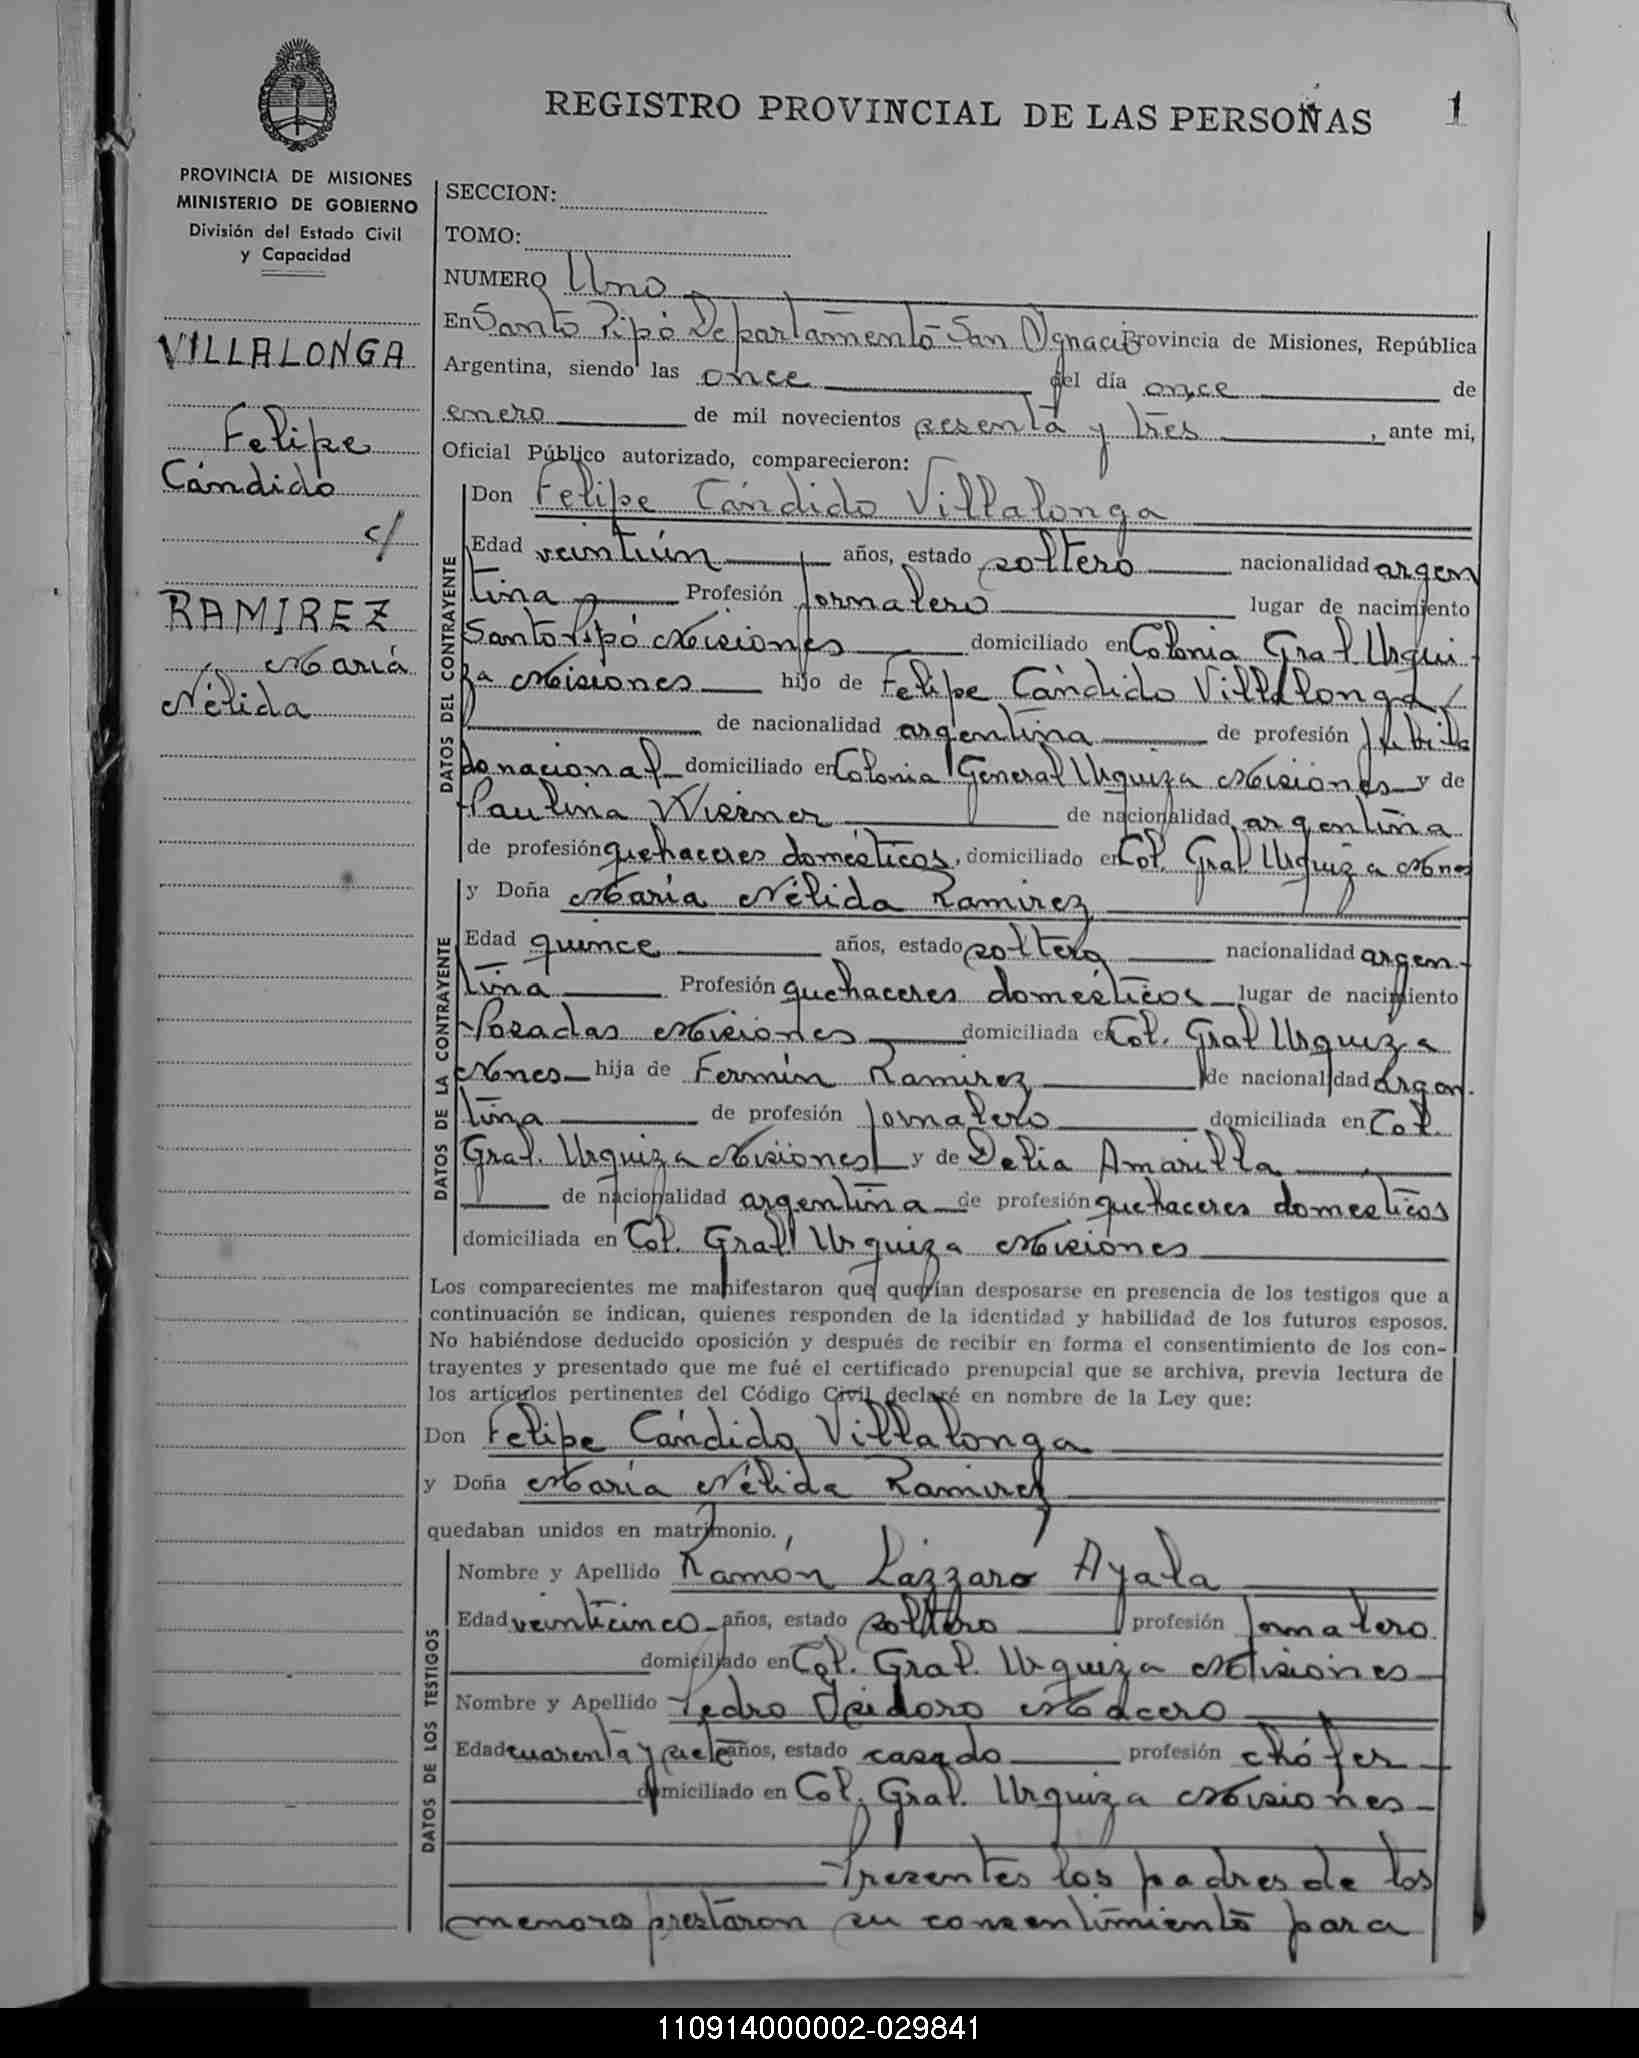 REGISTRO PROVINCIAL DE LAS PERSONAS
1
PROVINCIA DE MISIONES
MINISTERIO DE GOBIERNO
División del Estado Civil
y Capacidad
VILLALONGA
Felipe
Cándido
c/
RAMIREZ
María
Nélida
SECCION:
TOMO:
NUMERO Uno
En Santo Pipó Departamento San Ygnacio Provincia de Misiones, República
Argentina, siendo las once del día once de
enero de mil novecientos sesenta y tres, ante mi,
Oficial Público autorizado, comparecieron:
DATOS DEL CONTRAYENTE
Don Felipe Cándido Villalonga
Edad veintiún años, estado soltero nacionalidad argen
tina Profesión Jornalero lugar de nacimiento
Santo Pipó Misiones domiciliado en Colonia Gral Urqui
za Misiones hijo de Felipe Cándido Villalonga
de nacionalidad argentina de profesión Jubila
do nacional domiciliado en Colonia General Urquiza Misiones y de
Paulina de nacionalidad argentina
de profesión quehaceres domésticos, domiciliado en Col. Gral Urquiza Mnes
DATOS DE LA CONTRAYENTE
y Doña María Nélida Ramirez
Edad quince años, estado soltera nacionalidad argen-
tina Profesión quehaceres domésticos lugar de nacimiento
Posadas Misiones domiciliada en Col. Gral Urquiza
Mnes hija de Fermín Ramirez de nacionalidad argen.
tina de profesión Jornalero domiciliada en Col.
Gral. Urquiza Misiones y de Delia Amarilla
de nacionalidad argentina de profesión quehaceres domesticos
domiciliada en Col. Gral Urquiza Misiones
Los comparecientes me manifestaron que querían desposarse en presencia de los testigos que a
continuación se indican, quienes responden de la identidad y habilidad de los futuros esposos.
No habiéndose deducido oposición y después de recibir en forma el consentimiento de los con-
trayentes y presentado que me fué el certificado prenupcial que se archiva, previa lectura de
los artículos pertinentes del Código Civil declaré en nombre de la Ley que:
Don Felipe Cándido Villalonga
y Doña María Nélida Ramirez
quedaban unidos en matrimonio.
DATOS DE LOS TESTIGOS
Nombre y Apellido Ramón Lázzaro Ayala
Edad veinticinco años, estado soltero profesión Jornalero.
domiciliado en Col. Gral. Urquiza Misiones
Nombre y Apellido Pedro Ysidoro Macero
Edad cuarenta y siete años, estado casado profesión chófer
domiciliado en Col. Gral. Urquiza Misiones
Presentes los padres de los
menores prestaron su consentimiento para
110914000002-029841